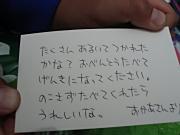 たくさんあるいてつかれた
かなて おべんとうたべて
げんきになってください。
のこさずたべてくれたら
うれしいな。
おかあさんより